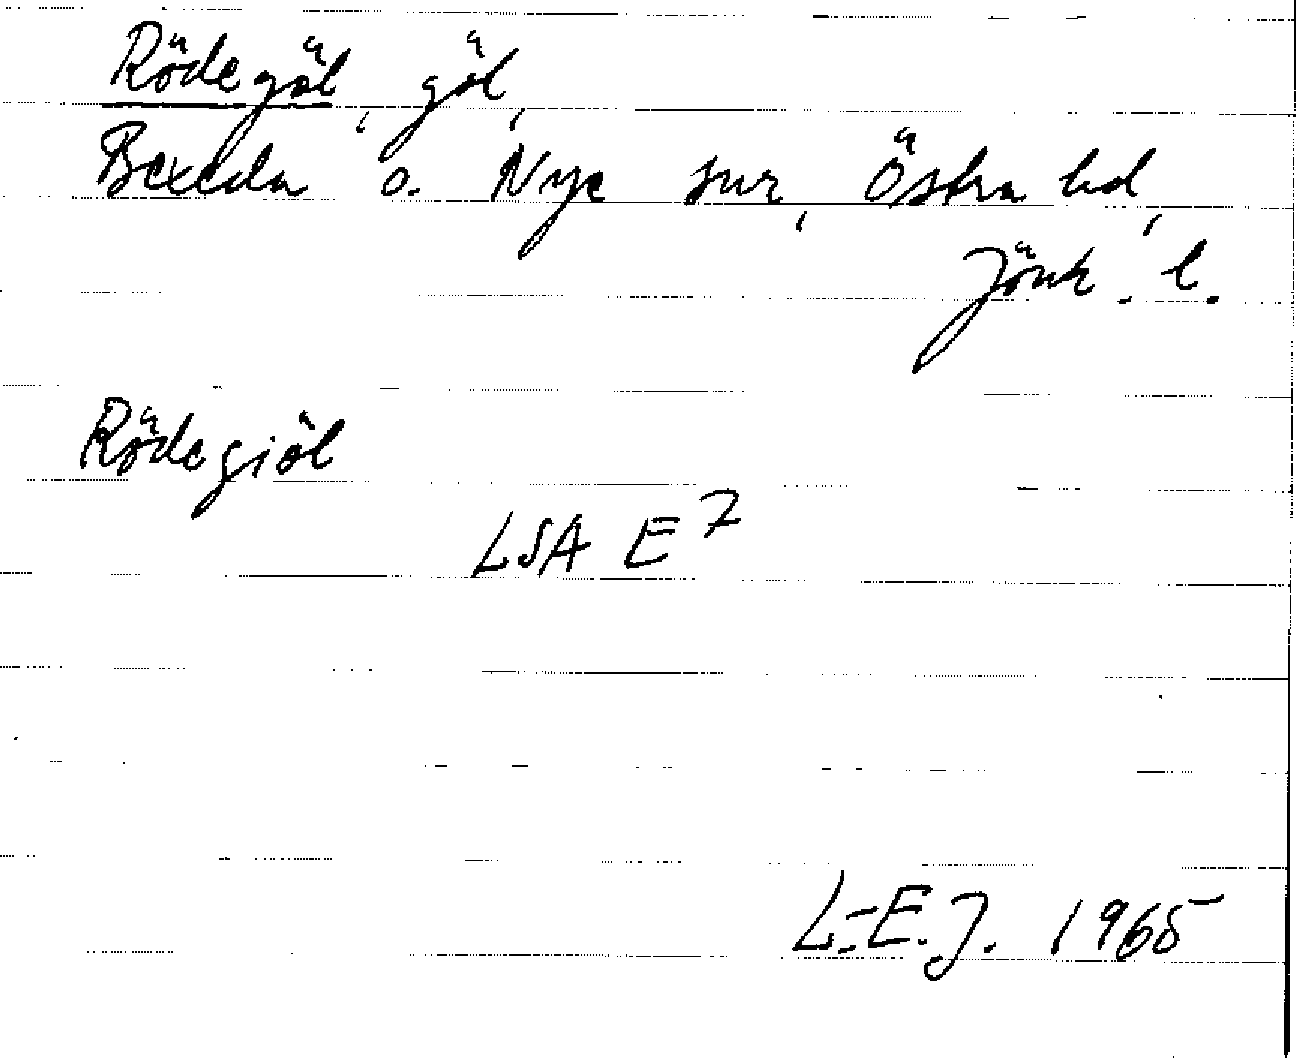 Rödegöl, göl,
Bexeda o. Nye snr, Östra hd,
Jönk. l.
Rödegiöl
LSA E7
L.-E.J. 1965